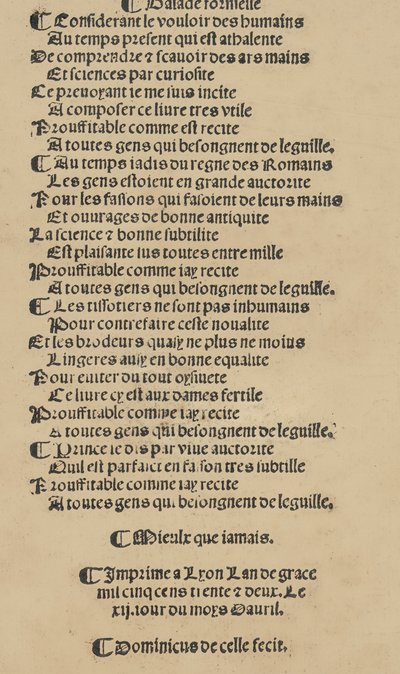 ¶ Balade formelle
¶ Considerant le vouloir des humains
Au temps present qui est athalente
De comprendre ⁊ scauoir des ars mains
Et sciences par curiosite
Ce preuoyant ie me suis incite
A composer ce liure tres vtile
Prouffitable comme est recite
A toutes gens qui besongnent de leguille.
¶ Au temps iadis du regne des Romains
Les gens estoient en grande auctorite
Pour les fassons qui fasoient de leurs mains
Et ouurages de bonne antiquite
La science ⁊ bonne subtilite
Est plaisante sus toutes entre mille
Prouffitable comme iay recite
A toutes gens qui besongnent de leguille.
¶ Les tissotiers ne sont pas inhumains
Pour contrefaire ceste noualite
Et les brodeurs quasy ne plus ne moins
Lingeres ausy en bonne equalite
Pour euiter du tout oysiuete
Ce liure cy est aux dames fertile
Prouffitable comme iay recite
A toutes gens qui besongnent de leguille.
¶ Prince ie dis par viue auctorite
Quil est parfaict en fasson tres subtille
Prouffitable comme iay recite
A toutes gens qui besongnent de leguille.
¶ Mieulx que iamais.
¶ Imprime a Lyon Lan de grace
mil cinq cens trente ⁊ deux. Le
xij. iour du moys Dauril.
¶ Dominicus de celle fecit.